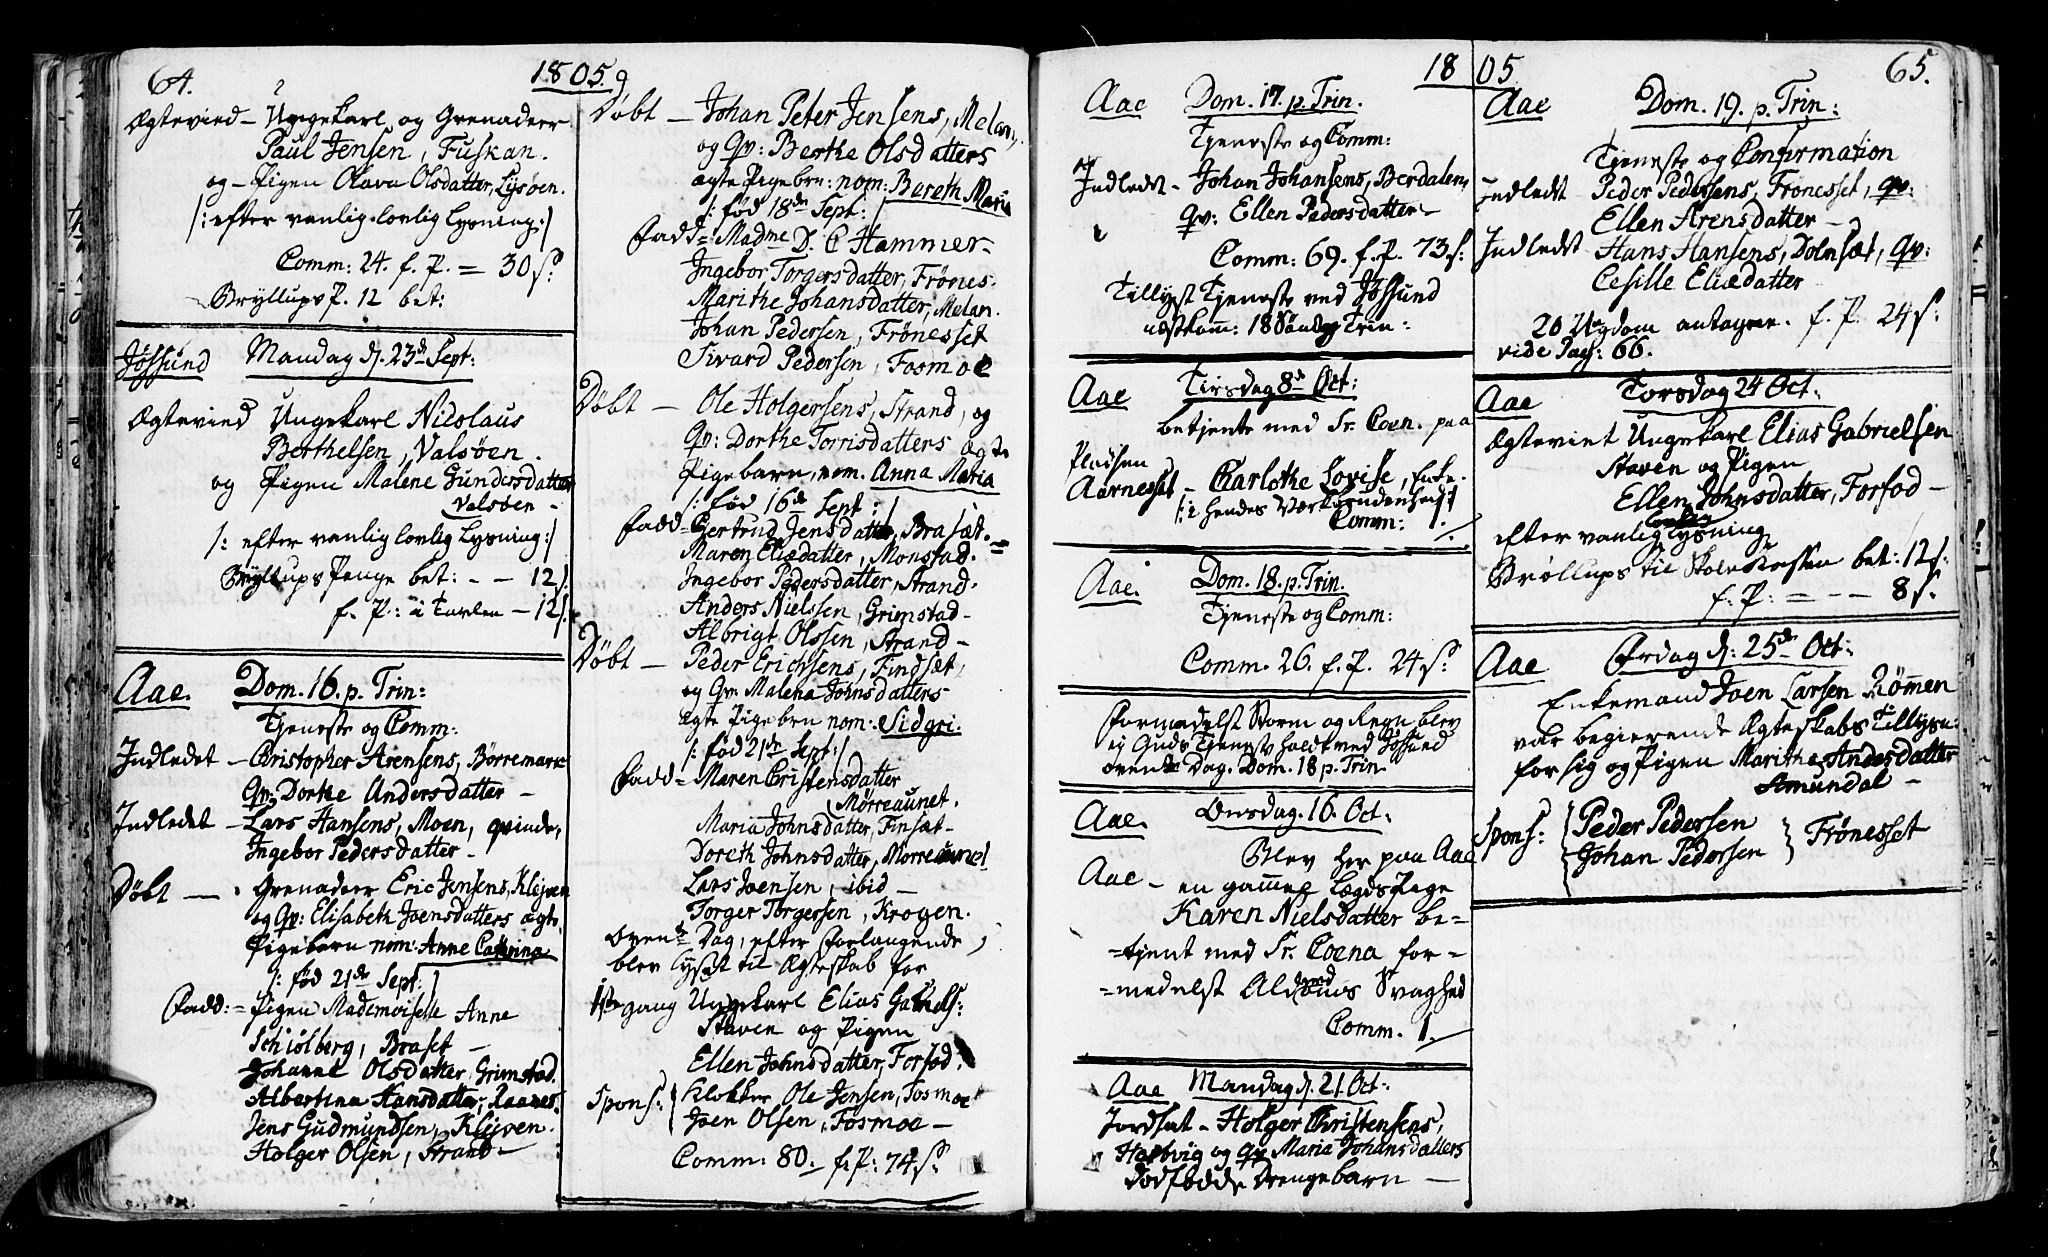 64.
1805
Ægtevied – Ungekarl og Grenadeer
Paul Jensen, Fuskan.
og – Pigen Olava Olsdatter, Lysøen.
/: efter vanlig lovlig Lysning :/
Comm: 24. f. P. = 30 s.
Bryllups P. 12 bet:
Jössund Mandag d. 23de Sept:
Ægtevied Ungekarl Nicolaus
Berthelsen, Valsøen.
og Pigen Malene Gundersdatter
Valsøen –
/: efter vanlig lovlig Lysning :/
Bryllups Penge bet: – – 12 s.
f. P: i Tavlen – 12 s.
Aae. Dom. 16. p. Trin:
Tjeneste og Comm:
Indledet – Christopher Arensens, Börremark
Qv: Dorthe Andersdatter –
Indledet – Lars Hansens, Moen, qvinde,
Ingebor Pedersdatter –
Döbt – Grenadeer Eric Jensens, Kleiven
og Qv: Elisabeth Joensdatters ægte
Pigebarn nom: Anne Cathrina
/: föd 21de Sept: /
Fadd: = Pigen Mademoiselle Anne
Schiölberg, Braset –
Johanne Olsdatter, Grimstad.
Albertina Hansdatter,
Jens Gudmundsen, Kleiven.
Holger Olsen, Strand –
Döbt – Johan Peter Jensens, Melan,
og Qv: Berthe Olsdatters
ægte Pigebrn: nom: Bareth Maria
/: föd 18de Sept: /
Fadd = Madme D. C Hammer –
Ingebor Torgersdatter, Frönes –
Marithe Johansdatter, Melan.
Johan Pedersen, Frönesset
Sivard Pedersen, Fosmoe
Döbt – Ole Holgersens, Strand, og
Qv: Dorthe Torrisdatters ægte
Pigebarn, nom. Anna Maria
/: föd 16de Sept: /
Fadd = Gertrud Jensdatter, Brasæt. =
Maren Eliædatter, Monstad.
Ingebor Pedersdatter, Strand.
Anders Nielssen, Grimstad –
Albrigt Olssen, Strand –
Döbt – Peder Erichsens, Findsæt,
og Qv: Malena Johnsdatters
ægte Pigebrn nom: Sidgri.
/: föd 21de Sept: /
Fadd = Maren Cristensdatter
Mörreaunet.
Maria Johnsdatter, Finsæt –
Doreth Johnsdatter, Mörreaunet
Lars Joensen, ibid –
Torger Torgersen, Krogen.
Ovente Dag, efter Forlangende,
blev lyset til Ægteskab for
1ste gang Ungekarl Elias Gabriels:
Staven og Pigen
Ellen Johnsdatter, Forfod.
Spons: Klokker Ole Jensen, Fosmoe
Joen Olsen, Fosmoe –
Comm: 80. f. P: 74 s.
1805
65.
Aae Dom. 17. p. Trin.
Tjeneste og Comm:
Indledet – Johan Johansens, Berdalen,
Qv: Ellen Pedersdatter –
Comm: 69. f. P. 73 s:
Tillyst Tjeneste ved Jössund
næstkomm: 18 Söndag Trin:
Aae Tirsdag 8de Oct:
betjente med Sr. Coen. paa
Pladsen
Aarnesset – Charlothe Lovise, Enke.
/: i hendes :/
Comm: 1.
Aae. Dom. 18. p. Trin.
Tjeneste og Comm:
Comm. 26. f. P. 24 s.
Formedelst Storm og Regn blev
ej Guds Tjeneste holdt ved Jössund
ovente Dag. Dom. 18 p. Trin
Aae. Onsdag. 16. Oct:
Blev her paa Aae
Aae – en gammel Lægds Pige
Karen Nielsdatter be=
=tjent med Sr. Coena for=
=medelst Alderdoms Svaghed
Comm. 1.
Aae Mandag d. 21. Oct:
Jordsat – Holger Christensens,
Hasbvig og Qv Maria Johansdatters
dödfödde Drengebarn –
Aae Dom. 19. p. Trin:
Tjeneste og Confirmation
Indledet Peder Pedersens, Fronesset, Qv:
Ellen Arensdatter –
Indledet – Hans Hansens, Dolmsæt, Qv:
Cesille Eliædatter
20 Ungdom antagen. f. P. 24 s:
vide Pag: 66.
Aae Torsdag 24 Oct:
Ægteviet Ungekarl Elias Gabrielsen
Staven og Pigen
Ellen Johnsdatter, Forfod –
efter vanlig lovlig Lysning
Bröllups til Skolekassen bet: 12 s.
f. P: = – – 8 s.
Aae Fredag d: 25de Oct:
Enkemand Joen Larsen Römen
var begierende Ægteskabs Tillysn:
for sig og Pigen Marithe Andersdatter
Amundal –
Spons: Peder Pedersen
Johan Pedersen Frönesset